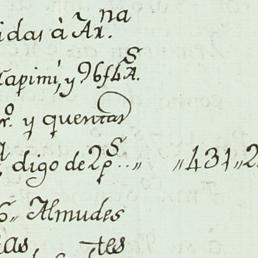 idas à Ar.na
Tapimí, y 96f4 R.s
r.o y quentas
digo de 2 p.s.. „431„2
6„ Almudes